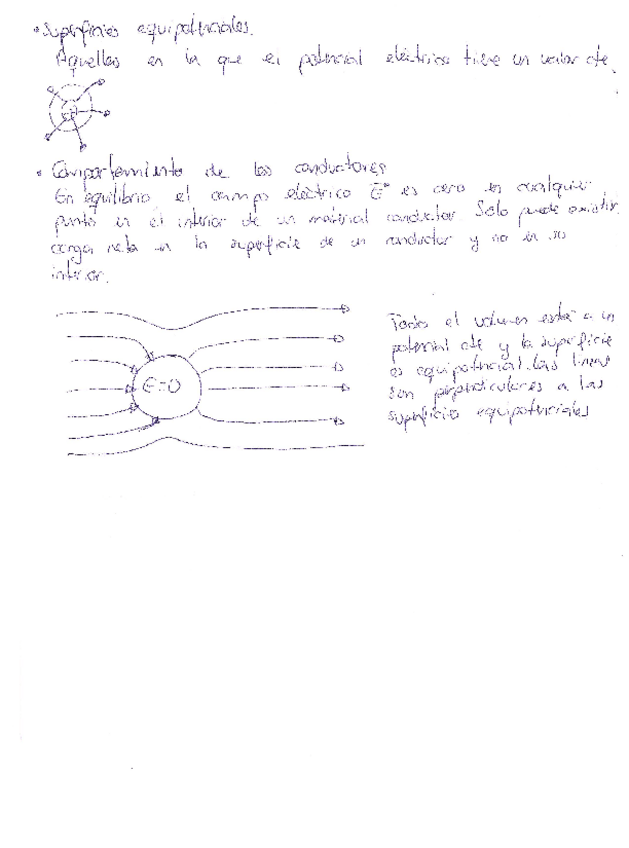 • Superficies equipotenciales.
Aquellas en la que el potencial eléctrico tiene un valor cte.
• Comportamiento de los conductores
En equilibrio, el campo eléctrico E es cero en cualquier
punto en el interior de un material conductor. Solo puede existir
carga neta en la superficie de un conductor y no en su
interior.
E=0
Todo el volumen está a un
potencial cte y la superficie
es equipotencial. Las lineas
son perpendiculares a las
superficies equipotenciales